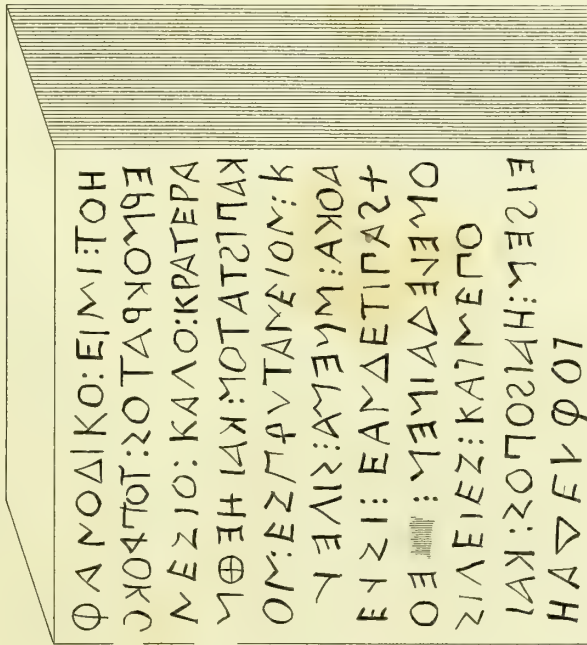 ΦΑΝΟΔΙΚΟ:ΕΙΜΙ:ΤΟΗ
ΕΡΜΟΚΡΑΤΟΣ:ΤΟΠΡΟΚΟ
ΝΕΣΙΟ:ΚΑΓΟ:ΚΡΑΤΕΡΑ
ΚΑΠΙΣΤΑΤΟΝ:ΚΑΙΗΕΘΜ
ΟΝ:ΕΣΠΡΥΤΑΝΕΙΟΝ:Κ
ΔΟΚΑ:ΜΝΕΜΑ:ΣΙΓΕΥ
ΕΥΣΙ:ΕΑΝΔΕΤΙΠΑΣΧ
ΟΜΕΛΕΔΑΙΝΕΝ:ΕΟ
ΣΙΓΕΙΕΣ:ΚΑΙΜΕΠΟ
ΕΙΣΕΝ:ΗΑΙΣΟΠΟΣ:ΚΑΙ
ΗΑΔΕΛΦΟΙ